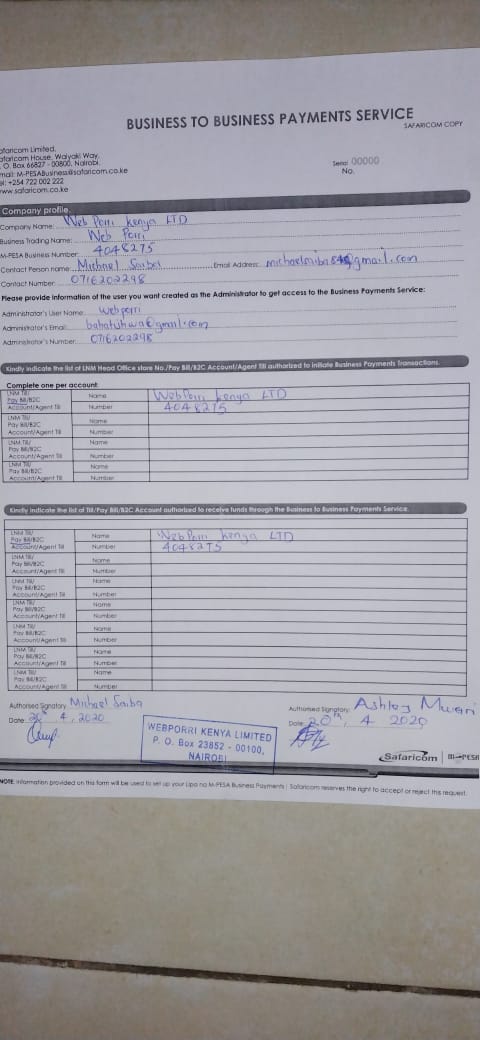 BUSINESS TO BUSINESS PAYMENTS SERVICE
SAFARICOM COPY
afaricom Limited,
afaricom House, Waiyaki Way,
. O. Box 66827 - 00800, Nairobi.
mail: M-PESABusiness@safaricom.co.ke
el: +254 722 002 222
www.safaricom.co.ke
Serial No. 00000
Company profile
Company Name: Web Porri Kenya LTD
Business Trading Name: Web Porri
M-PESA Business Number: 4048275
Contact Person name: Michael Saiba Email Address: @gmail.com
Contact Number: 0716202298
Please provide information of the user you want created as the Administrator to get access to the Business Payments Service:
Administrator's User Name: webporri
Administrator's Email: @gmail.com
Administrator's Number: 0716202298
Kindly indicate the list of LNM Head Office store No./Pay Bill/B2C Account/Agent Till authorized to initiate Business Payments Transactions.
Complete one per account
LNM Till/
Pay Bill/B2C
Account/Agent Till
Name Web Porri Kenya LTD
Number 4048275
LNM Till/
Pay Bill/B2C
Account/Agent Till
Name
Number
LNM Till/
Pay Bill/B2C
Account/Agent Till
Name
Number
LNM Till/
Pay Bill/B2C
Account/Agent Till
Name
Number
Kindly indicate the list of Till/Pay Bill/B2C Account authorized to receive funds through the Business to Business Payments Service.
LNM Till/
Pay Bill/B2C
Account/Agent Till
Name Web Porri Kenya LTD
Number 4048275
LNM Till/
Pay Bill/B2C
Account/Agent Till
Name
Number
LNM Till/
Pay Bill/B2C
Account/Agent Till
Name
Number
LNM Till/
Pay Bill/B2C
Account/Agent Till
Name
Number
LNM Till/
Pay Bill/B2C
Account/Agent Till
Name
Number
LNM Till/
Pay Bill/B2C
Account/Agent Till
Name
Number
LNM Till/
Pay Bill/B2C
Account/Agent Till
Name
Number
Authorised Signatory: Michael Saiba
Date: 20th 4, 2020
Authorised Signatory: Ashley Mwari
Date: 20th, 4 2020
WEBPORRI KENYA LIMITED
P. O. Box 23852 - 00100,
NAIROBI
Safaricom | M-PESA
NOTE: Information provided on this form will be used to set up your Lipa na M-PESA Business Payments | Safaricom reserves the right to accept or reject this request.